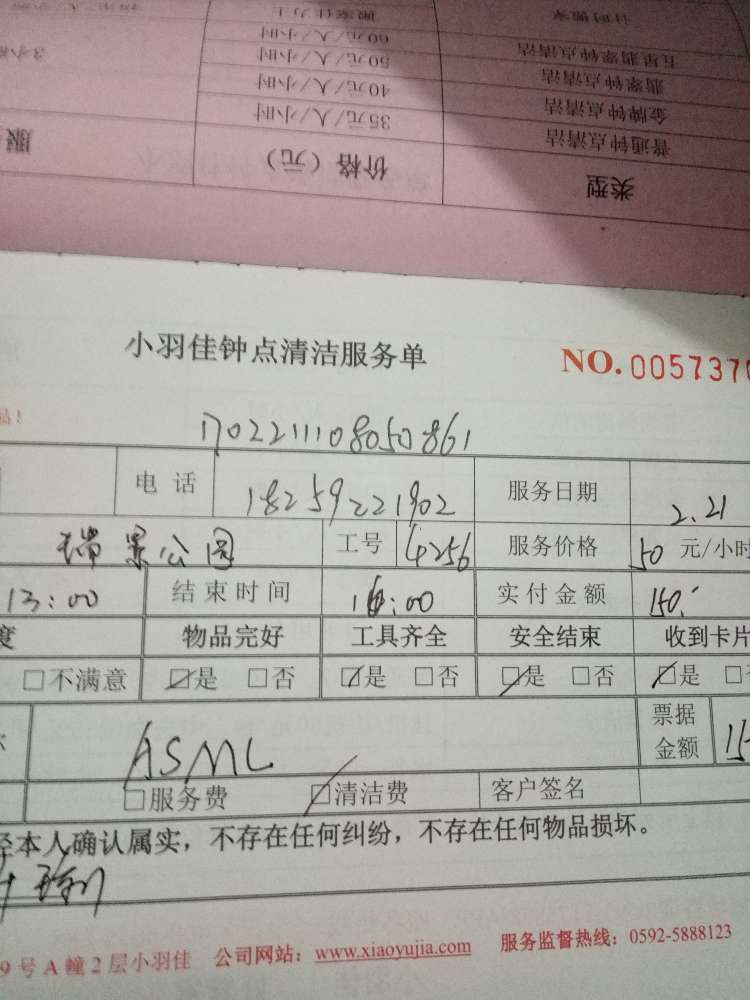 计时搬家 搬家佳力士
五星翡翠钟点清洁 60元/人/小时
翡翠钟点清洁 50元/人/小时 3小
金牌钟点清洁 40元/人/小时
普通钟点清洁 35元/人/小时
类型 价格（元） 服
小羽佳钟点清洁服务单 NO. 0057370
品!
1702211108050861
电 话 18259221902 服务日期 2.21
瑞景公园 工号 4256 服务价格 50 元/小时
13:00 结束时间 16:00 实付金额 150.
度 物品完好 工具齐全 安全结束 收到卡片
□不满意 ☑是 □否 ☑是 □否 ☑是 □否 ☑是 □
ASML 票据金额 15
□服务费 ☑清洁费 客户签名
经本人确认属实，不存在任何纠纷，不存在任何物品损坏。
9号A幢2层小羽佳 公司网站：www.xiaoyujia.com 服务监督热线：0592-5888123